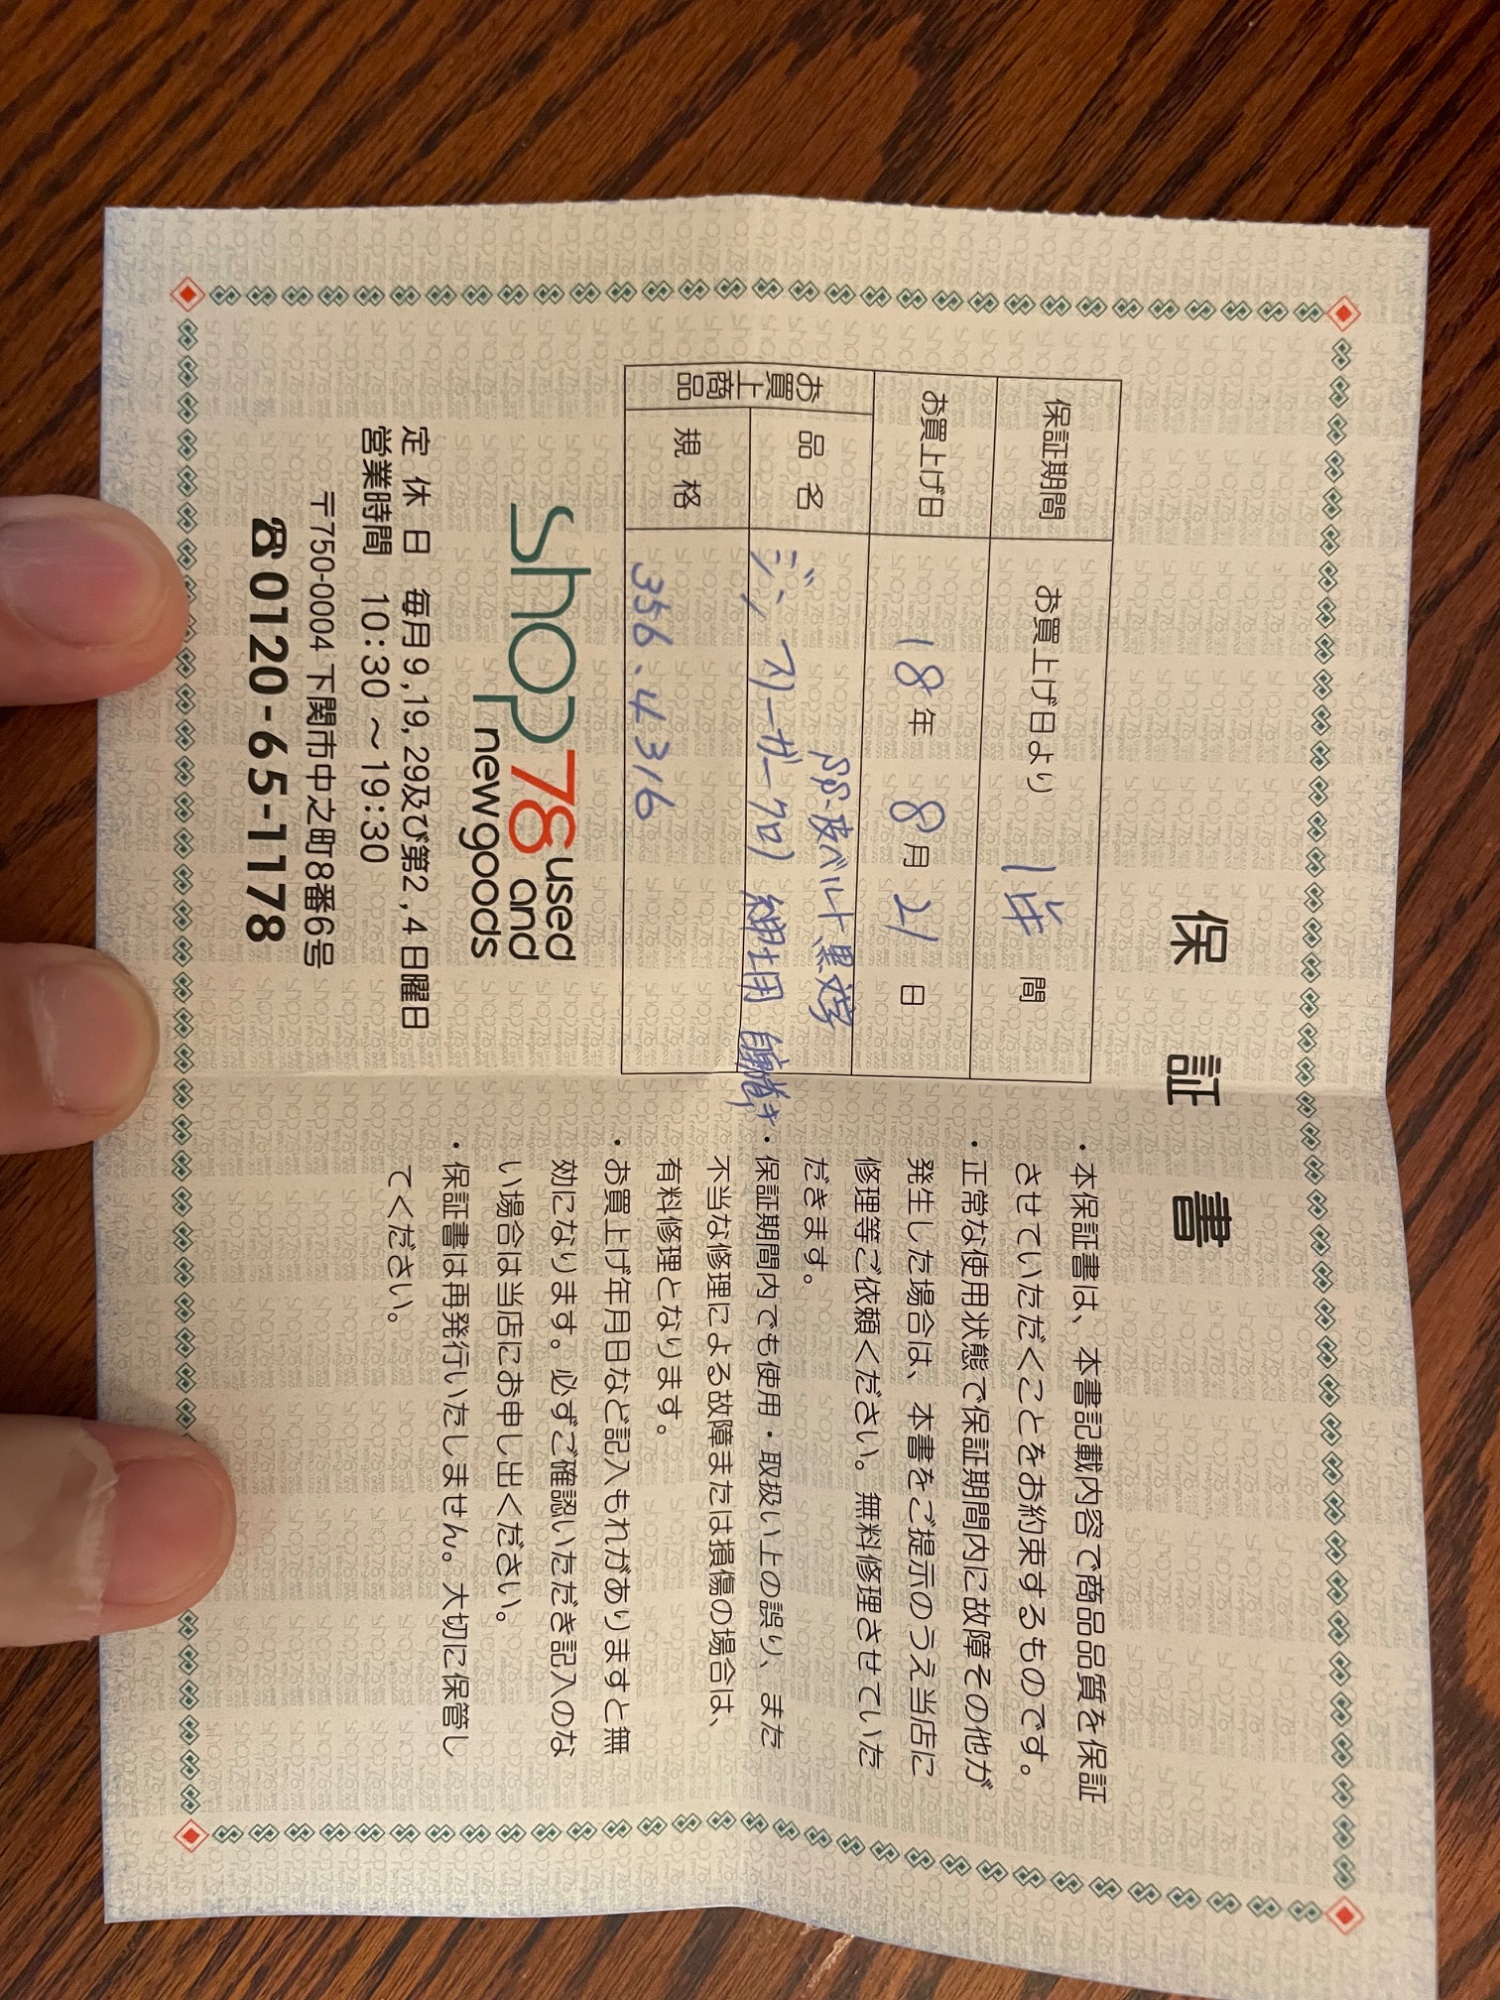 保証書
保証期間 お買上げ日より 1年 間
お買上げ日 18年 8月 21日
お買上商品
品名 SS-皮ベルト 黒文字
ジン スリーガークロノ 紳士用 自動巻き
規格 356.4316
shop78 used and newgoods
定休日 毎月9,19,29及び第2,4日曜日
営業時間 10:30～19:30
〒750-0004 下関市中之町8番6号
☎0120-65-1178
・本保証書は、本書記載内容で商品品質を保証
させていただくことをお約束するものです。
・正常な使用状態で保証期間内に故障その他が
発生した場合は、本書をご提示のうえ当店に
修理等ご依頼ください。無料修理させていた
だきます。
・保証期間内でも使用・取扱い上の誤り、また
不当な修理による故障または損傷の場合は、
有料修理となります。
・お買上げ年月日など記入もれがありますと無
効になります。必ずご確認いただき記入のな
い場合は当店にお申し出ください。
・保証書は再発行いたしません。大切に保管し
てください。